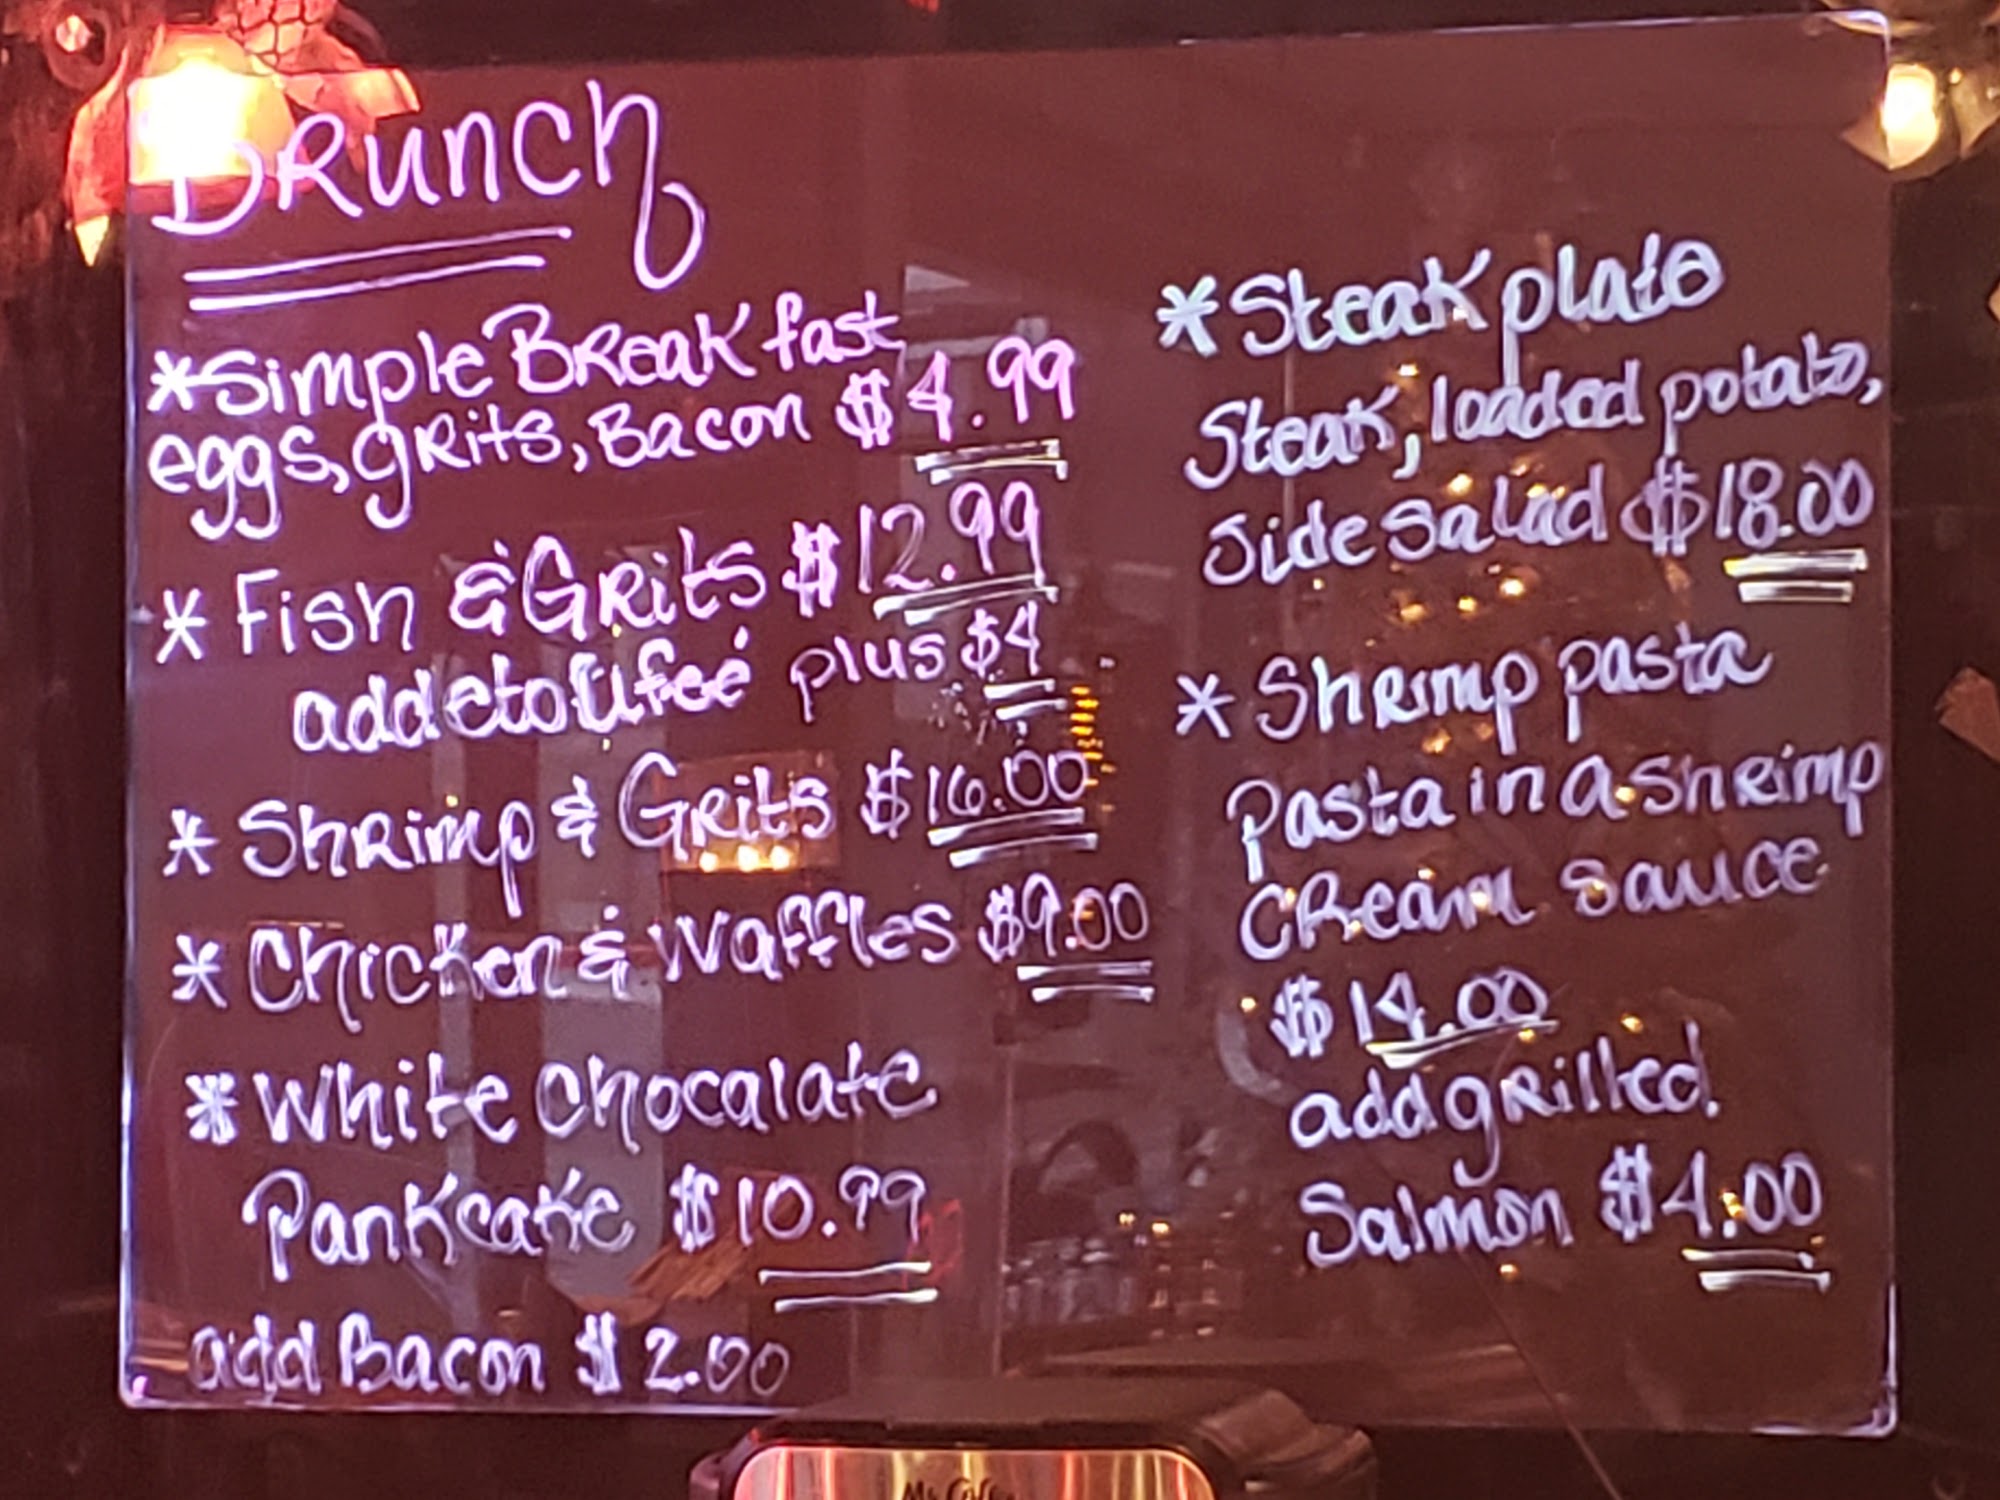 DRunch
*Simple BReakfast
eggs, gRits, Bacon $4.99
* Fish & GRits $12.99
add etoufeé plus $4
* ShRimp & GRits $16.00
* Chicken & Waffles $9.00
* White Chocalate
Pankcake $10.99
add Bacon $2.00
* Steak plate
Steak, loaded potato,
Side Salad $18.00
* ShRimp pasta
Pasta in a shRimp
CReam sauce
$14.00
add gRilled
Salmon $4.00
Mr. Coffee